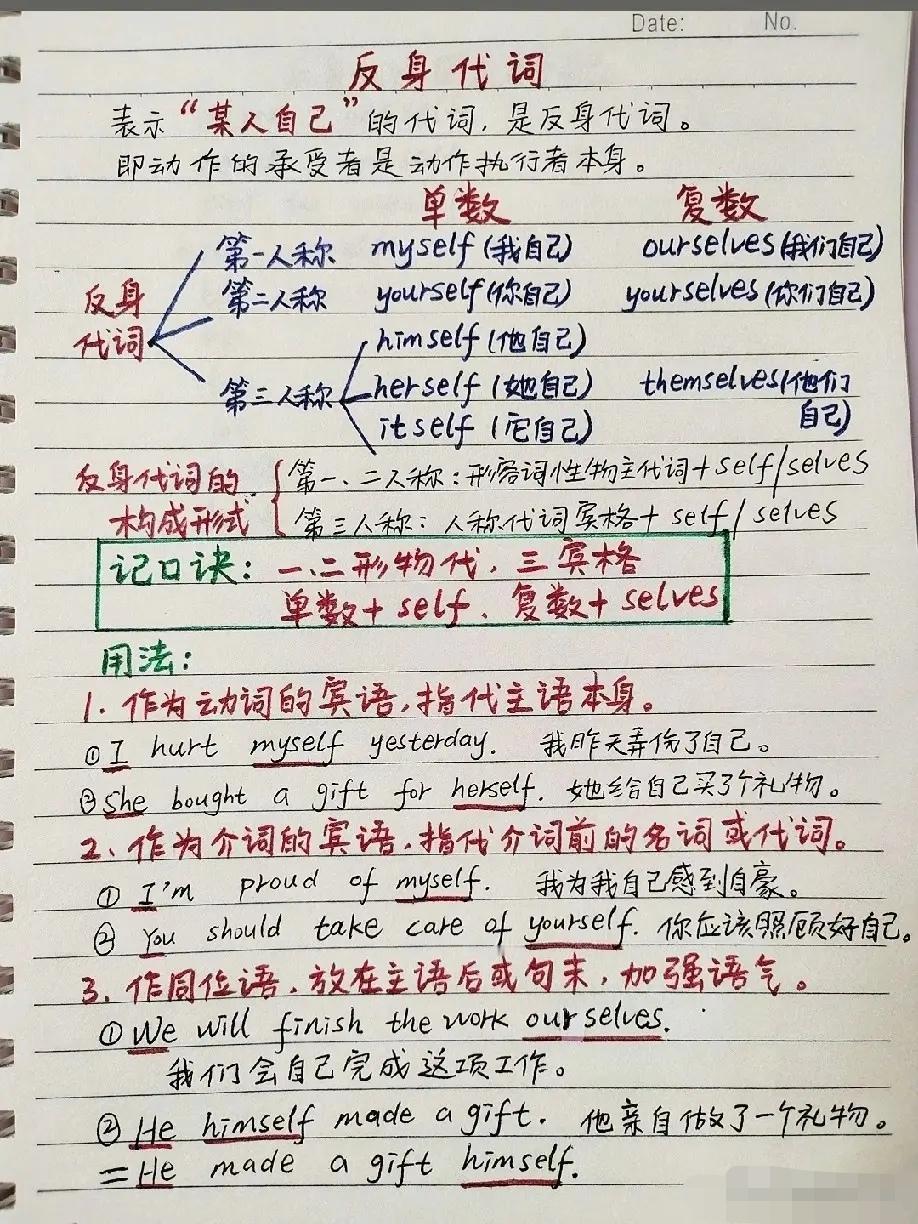 Date: No.
反身代词
表示“某人自己”的代词，是反身代词。
即动作的承受者是动作执行者本身。
单数 复数
第一人称 myself (我自己) ourselves (我们自己)
反身 第二人称 yourself (你自己) yourselves (你们自己)
代词 himself (他自己)
第三人称 herself (她自己) themselves (他们
itself (它自己) 自己)
反身代词的 第一、二人称：形容词性物主代词+ self/selves
构成形式 第三人称：人称代词宾格+ self/selves
记口诀：一、二形物代，三宾格
单数+ self、复数+ selves
用法：
1. 作为动词的宾语，指代主语本身。
① I hurt myself yesterday. 我昨天弄伤了自己。
② She bought a gift for herself. 她给自己买了个礼物。
2、作为介词的宾语，指代介词前的名词或代词。
① I'm proud of myself. 我为我自己感到自豪。
② You should take care of yourself. 你应该照顾好自己。
3、作同位语，放在主语后或句末，加强语气。
① We will finish the work ourselves.
我们会自己完成这项工作。
② He himself made a gift. 他亲自做了一个礼物。
=He made a gift himself.